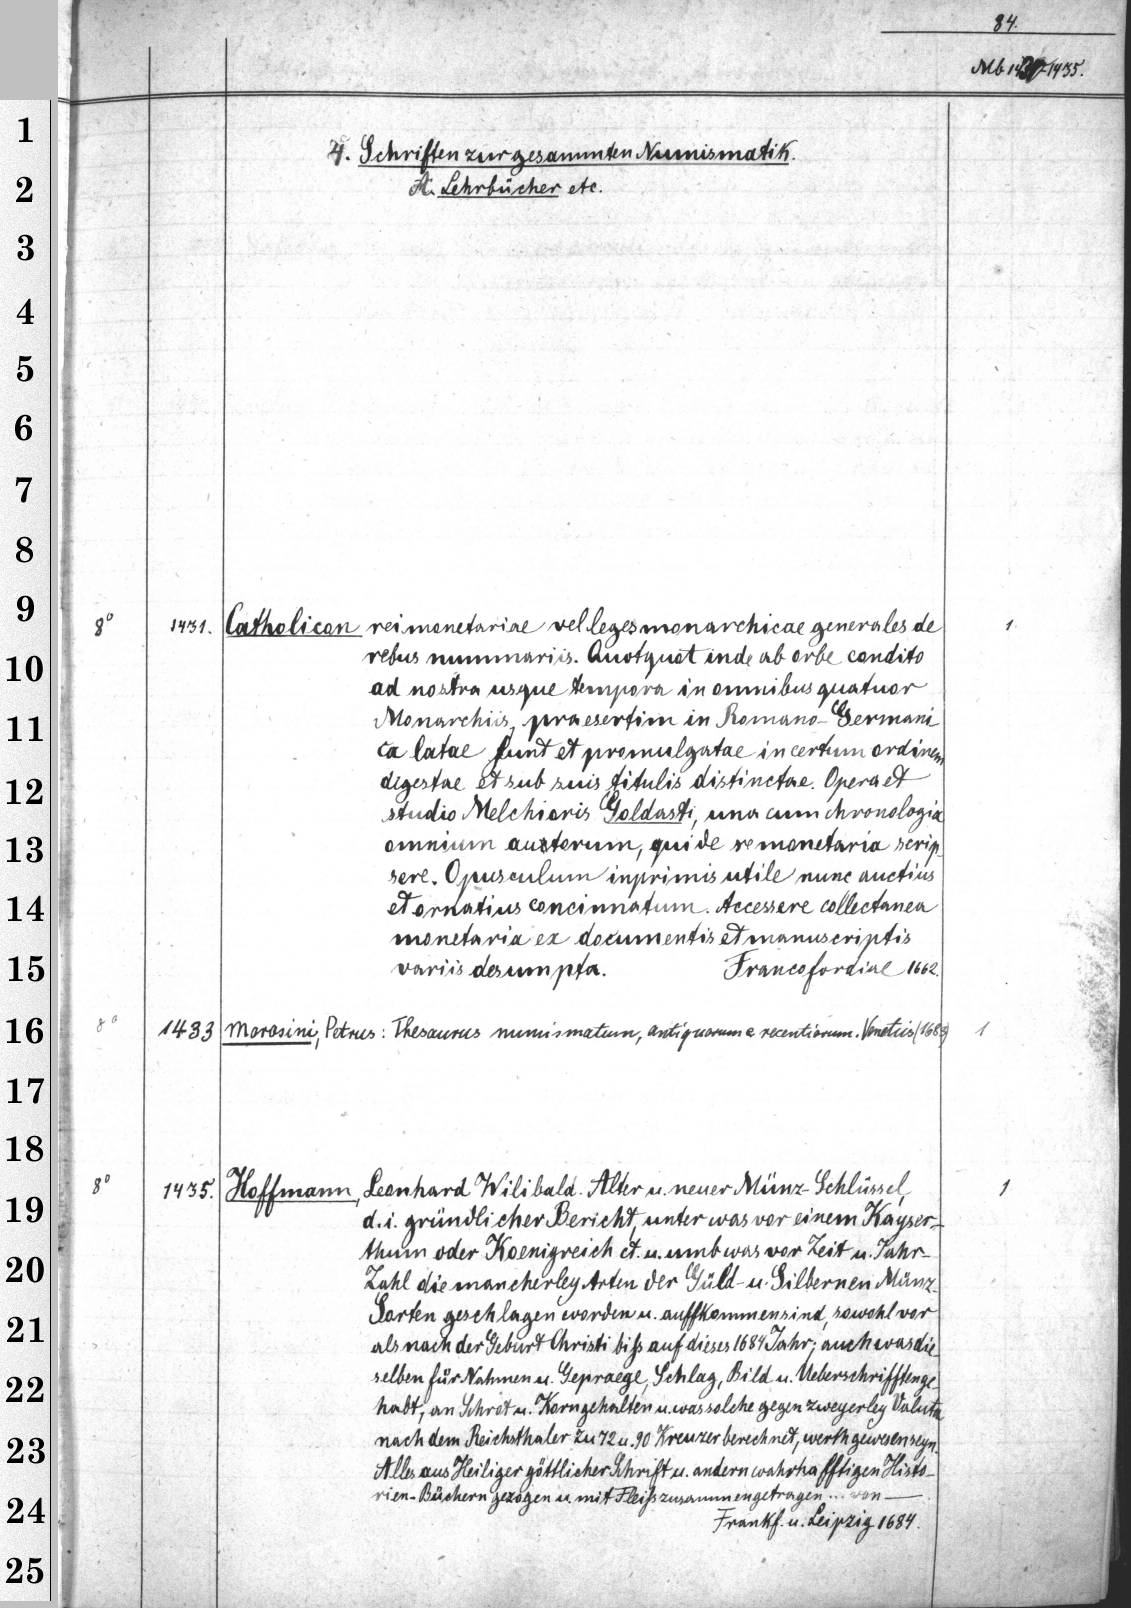 84.
Mb 1431-1435.
4. Schriften zur gesammten Numismatik.
A. Lehrbücher etc.
8° 1431. Catholicon rei monetariae vel leges monarchicae generales de 1
rebus nummariis. Quotquot inde ab orbe condito
ad nostra usque tempora in omnibus quatuor
Monarchiis, praesertim in Romano-Germani
ca latae sunt et promulgatae in certum ordinem
digestae et sub suis titulis distinctae. Opera et
studio Melchioris Goldasti, una cum chronologia
omnium auctorum, qui de re monetaria scrip
sere. Opusculum inprimis utile nunc auctius
et ornatius concinnatum. Accessere collectanea
monetaria ex documentis et manuscriptis
variis desumpta. Francofordiae 1662.
8° 1433 Morosini, Petrus: Thesaurus numismatum, antiquorum e recentiorum. Venetiis (1683) 1
8° 1435. Hoffmann, Leonhard Wilibald. Alter u. neuer Münz-Schlüssel, 1
d. i. gründlicher Bericht, unter was vor einem Kayser-
thum oder Koenigreich et. u. umb was vor Zeit u. Jahr-
Zahl die mancherley Arten der Güld- u. Silbernen Münz-
Sorten geschlagen worden u. auffkommen sind, sowohl vor
als nach der Geburt Christi biß auf dieses 1684 Jahr; auch was die
selben für Nahmen u. Gepraege, Schlag, Bild u. Ueberschrifften ge-
habt, an Schrot u. Korn gehalten u. was solche gegen zweyerley Valuta
nach dem Reichsthaler zu 72 u. 90 Kreuzer berechnet, werth gewesen seyn.
Alles aus Heiliger göttlicher Schrift u. andern wahrhafftigen Histo-
rien-Büchern gezogen u. mit Fleiß zusammengetragen ... von —
Frankf. u. Leipzig 1684.
1
2
3
4
5
6
7
8
9
10
11
12
13
14
15
16
17
18
19
20
21
22
23
24
25